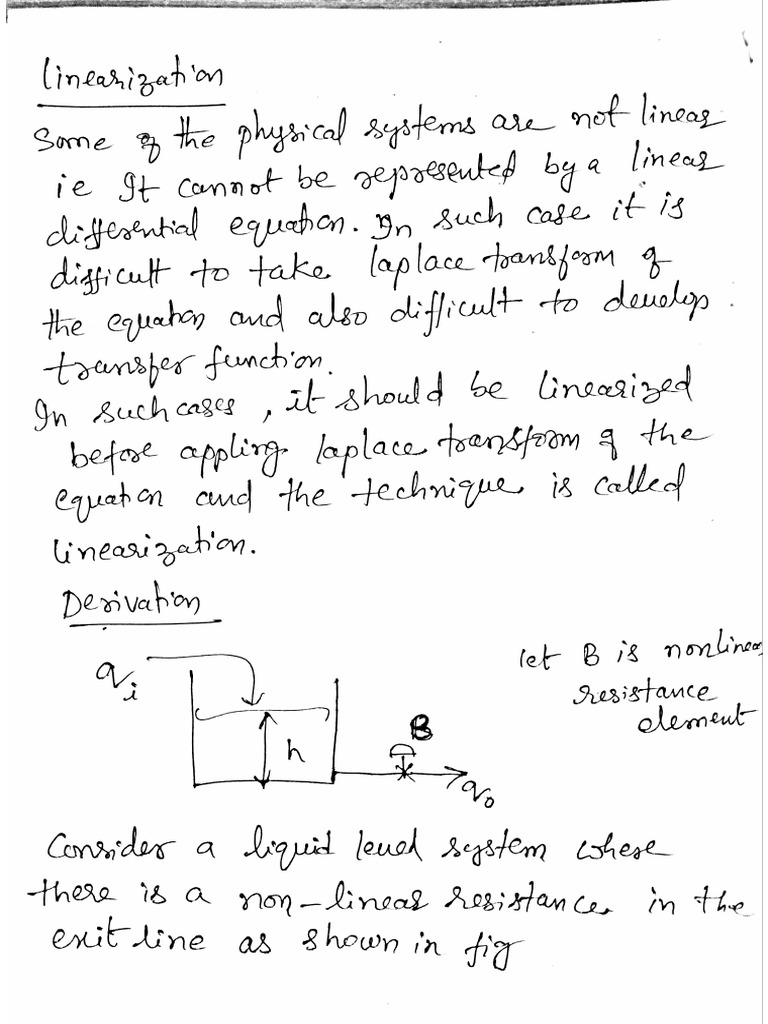 Linearization
Some of the physical systems are not linear
ie It cannot be represented by a linear
differential equation. In such case it is
difficult to take laplace transform of
the equation and also difficult to develop
transfer function.
In such cases, it should be linearized
before appling laplace transform of the
equation and the technique is called
linearization.
Derivation
qi
let B is nonlinear
resistance
element
B
h
qo
Consider a liquid level system where
there is a non-linear resistance in the
exit line as shown in fig